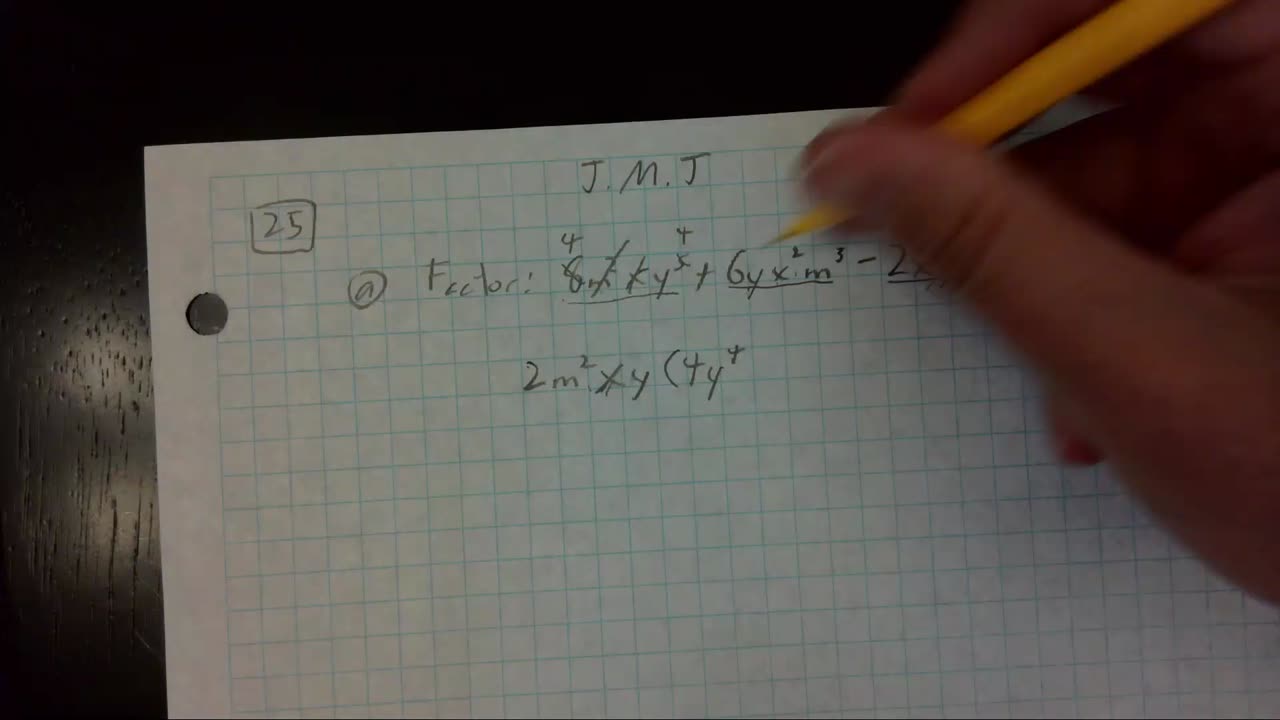 J.M.J
25
a Factor: 8m²xy⁵ + 6yx²m³ - 2
4 4
2m²xy (4y⁴